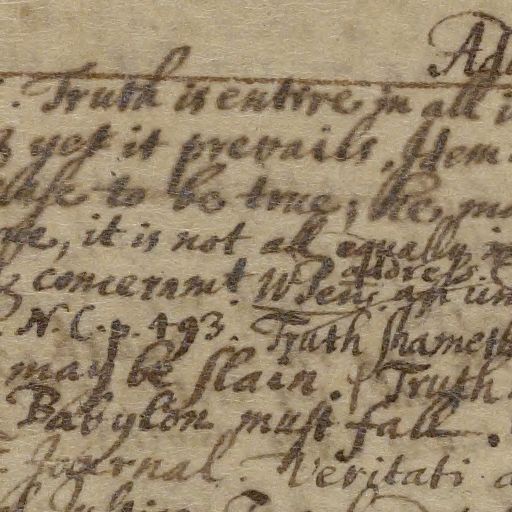 Ad
. Truth is entire in all i
yet it prevails. Item
to be true; he m
, it is not all equally i
address.
concernmt. W. Penn. an un
. N. C. p. 493. Truth shameth
may be slain. Truth
Babylon must fall.
Journal. Veritati a